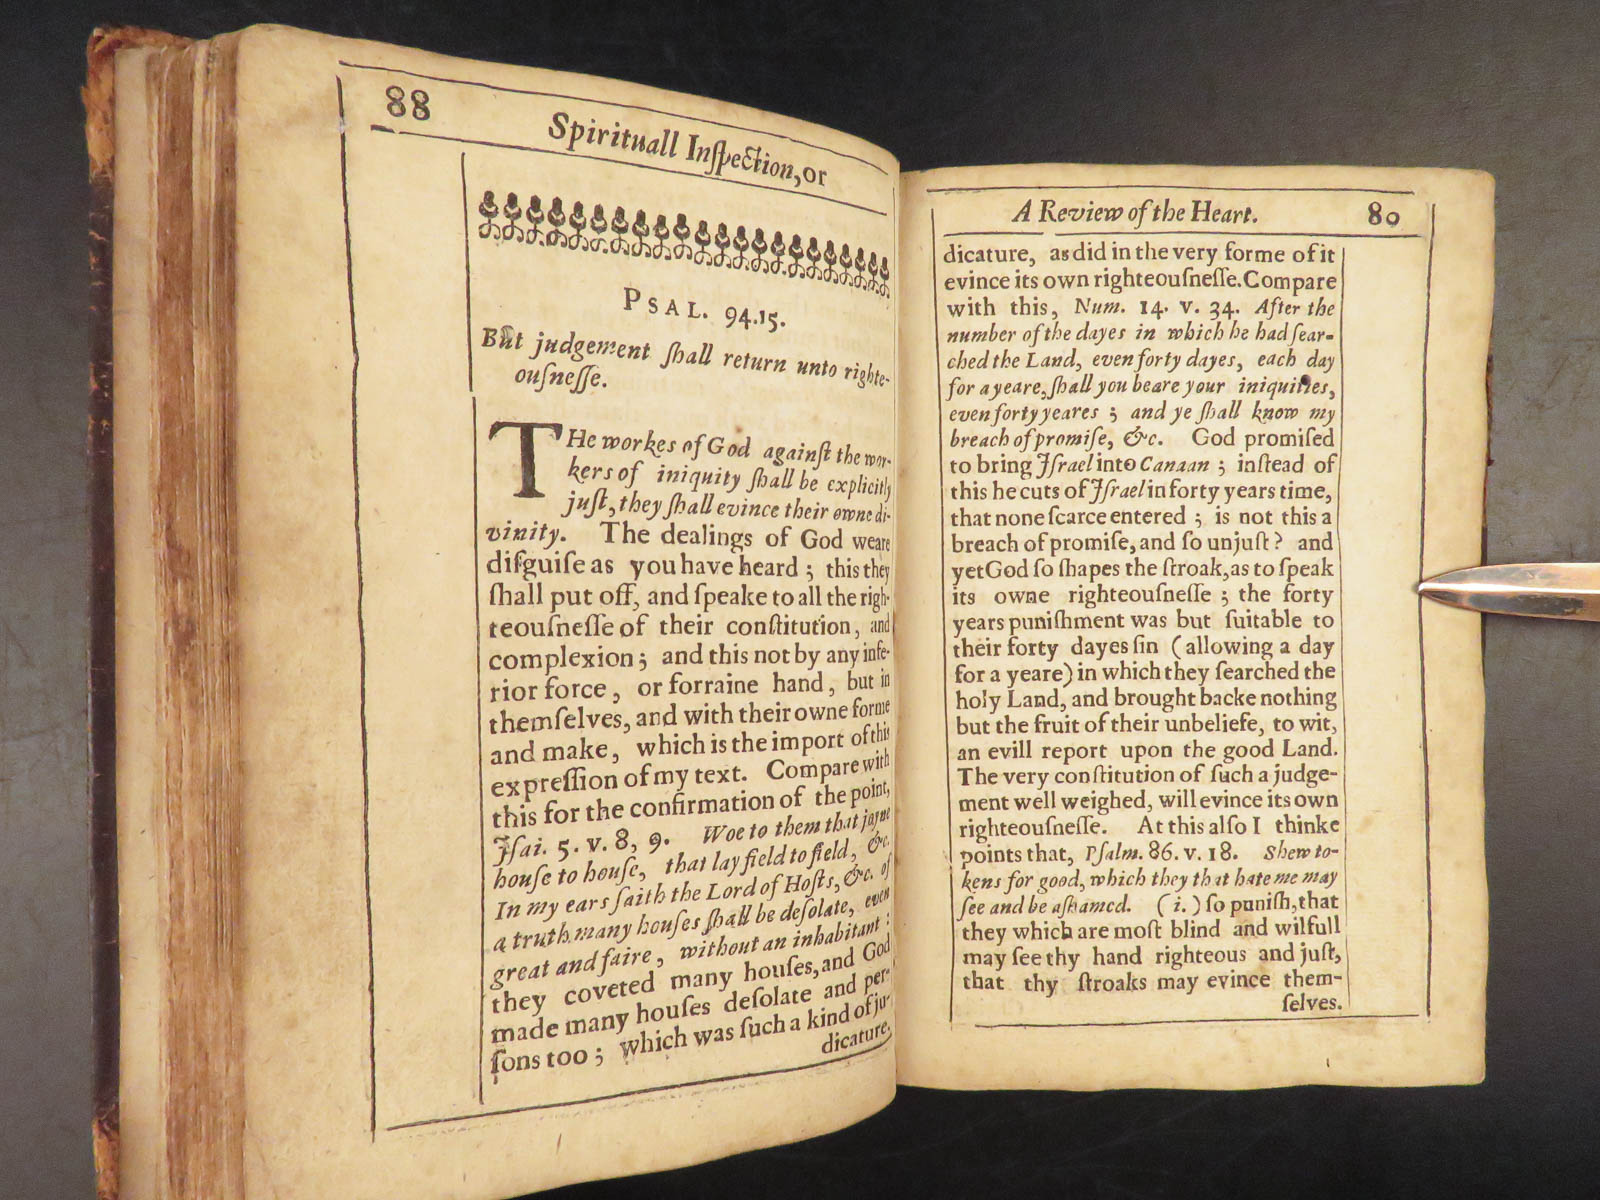 88
Spirituall Inſpection, or
PSAL. 94.15.
But judgement ſhall return unto righte-
ouſneſſe.
THe workes of God againſt the wor-
kers of iniquity ſhall be explicitly
juſt, they ſhall evince their owne di-
vinity. The dealings of God weare
diſguiſe as you have heard ; this they
ſhall put off, and ſpeake to all the righ-
teouſneſſe of their conſtitution, and
complexion ; and this not by any infe-
rior force, or forraine hand, but in
themſelves, and with their owne forme
and make, which is the import of this
expreſſion of my text. Compare with
this for the confirmation of the point,
Iſai. 5. v. 8, 9. Woe to them that joyne
houſe to houſe, that lay field to field, &c.
In my ears ſaith the Lord of Hoſts, &c. of
a truth many houſes ſhall be deſolate, even
great and faire, without an inhabitant :
they coveted many houſes, and God
made many houſes deſolate and per-
ſons too ; which was ſuch a kind of ju-
dicature,
A Review of the Heart.
80
dicature, as did in the very forme of it
evince its own righteouſneſſe. Compare
with this, Num. 14. v. 34. After the
number of the dayes in which he had ſear-
ched the Land, even forty dayes, each day
for a yeare, ſhall you beare your iniquities,
even forty yeares ; and ye ſhall know my
breach of promiſe, &c. God promiſed
to bring Iſrael into Canaan ; inſtead of
this he cuts of Iſrael in forty years time,
that none ſcarce entered ; is not this a
breach of promiſe, and ſo unjuſt? and
yet God ſo ſhapes the ſtroak, as to ſpeak
its owne righteouſneſſe ; the forty
years puniſhment was but ſuitable to
their forty dayes ſin (allowing a day
for a yeare) in which they ſearched the
holy Land, and brought backe nothing
but the fruit of their unbeliefe, to wit,
an evill report upon the good Land.
The very conſtitution of ſuch a judge-
ment well weighed, will evince its own
righteouſneſſe. At this alſo I thinke
points that, Pſalm. 86. v. 18. Shew to-
kens for good, which they that hate me may
ſee and be aſhamed. (i.) ſo puniſh, that
they which are moſt blind and wilfull
may ſee thy hand righteous and juſt,
that thy ſtroaks may evince them-
ſelves.